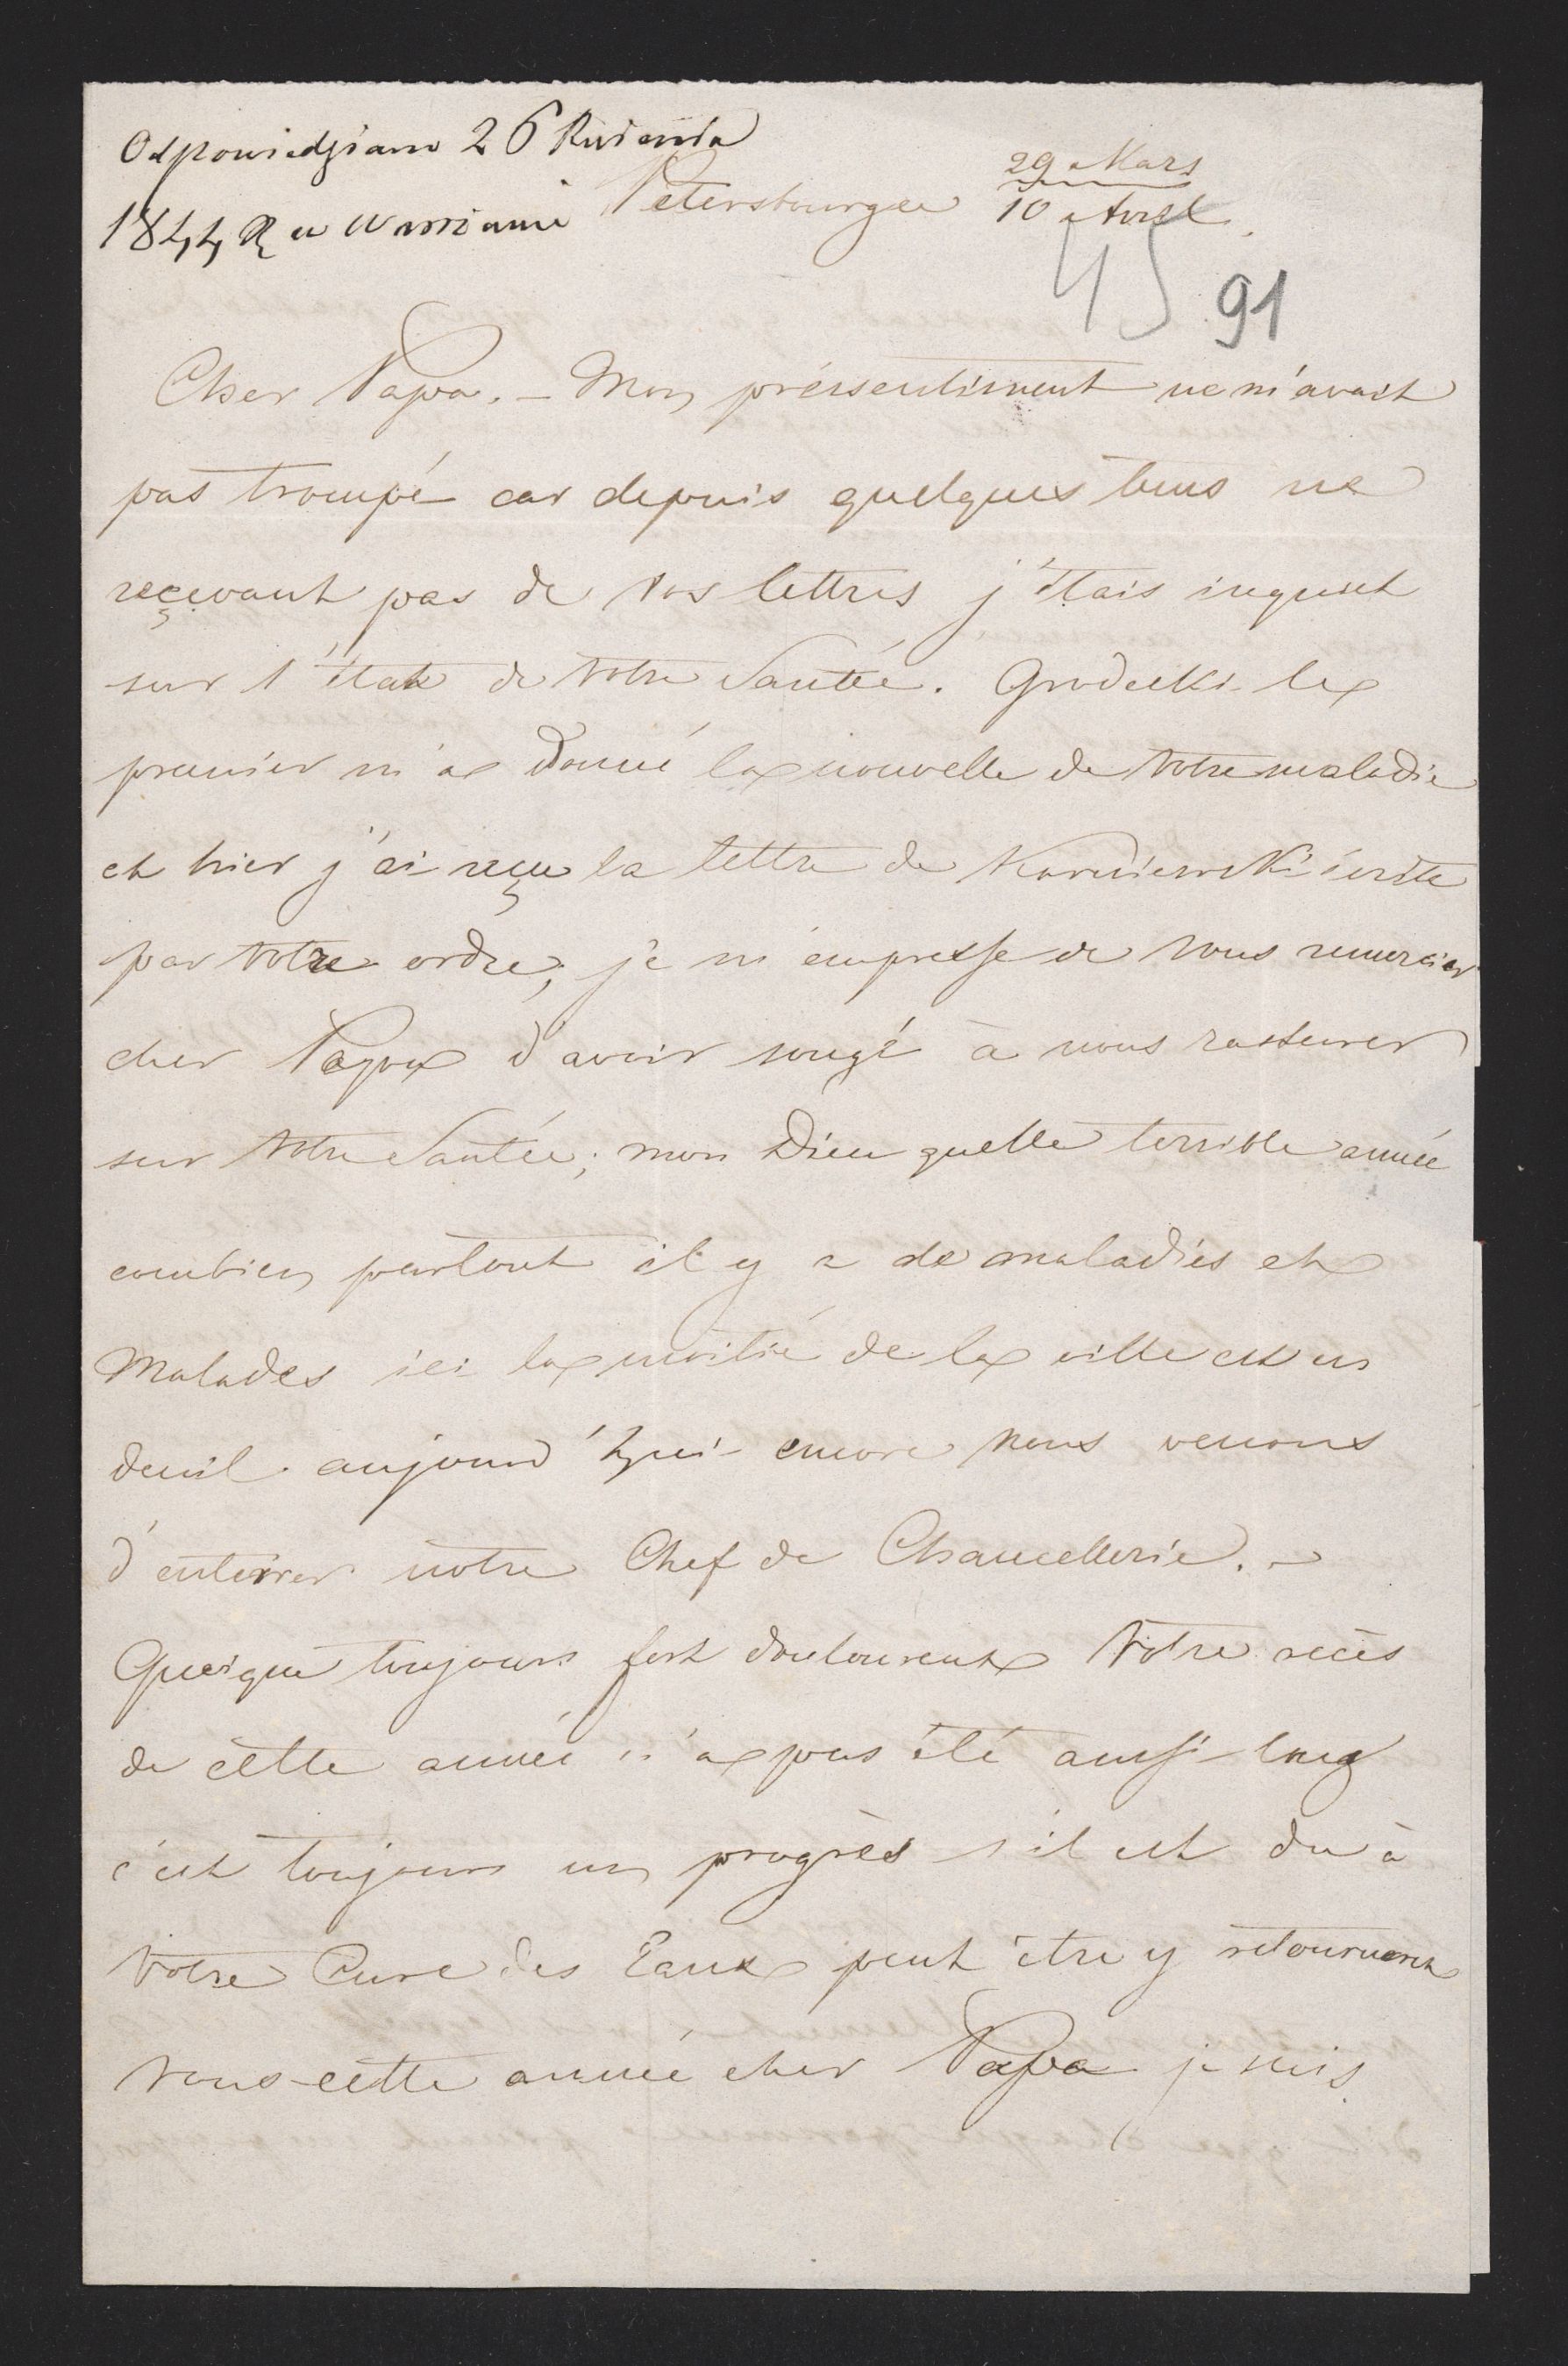 Odpowiedziano 26 Kwietnia
1844 R w Warszawie
Petersbourg
29 Mars
10 Avril.
45 91
Cher Papa. – Mon préssentiment ne m'avait
pas trompé car depuis quelques tems ne
reçevant pas de Vos lettres j'étais inquiet
sur l'état de Votre Santée. Grodecki le
premier m'a donné la nouvelle de Votre maladie
et hier j'ai reçu la lettre de Karniewski écrite
par Votre ordre, je m'empresse de Vous remercier
cher Papa d'avoir songé à nous rassurer
sur Votre Santée; mon Dieu quelle terrible année
combien partout il y a de maladies et
Malades ici la moitié de la ville est en
deuil aujourd'hui encore nous venons
d'enterrer notre Chef de Chancellerie. –
Quoique toujours fort douloureux Votre accès
de cètte année n'a pas été aussi long
c'est toujours un progrès s'il est du à
Votre Cure des Eaux peut être y retournerez
Vous cètte année cher Papa je suis